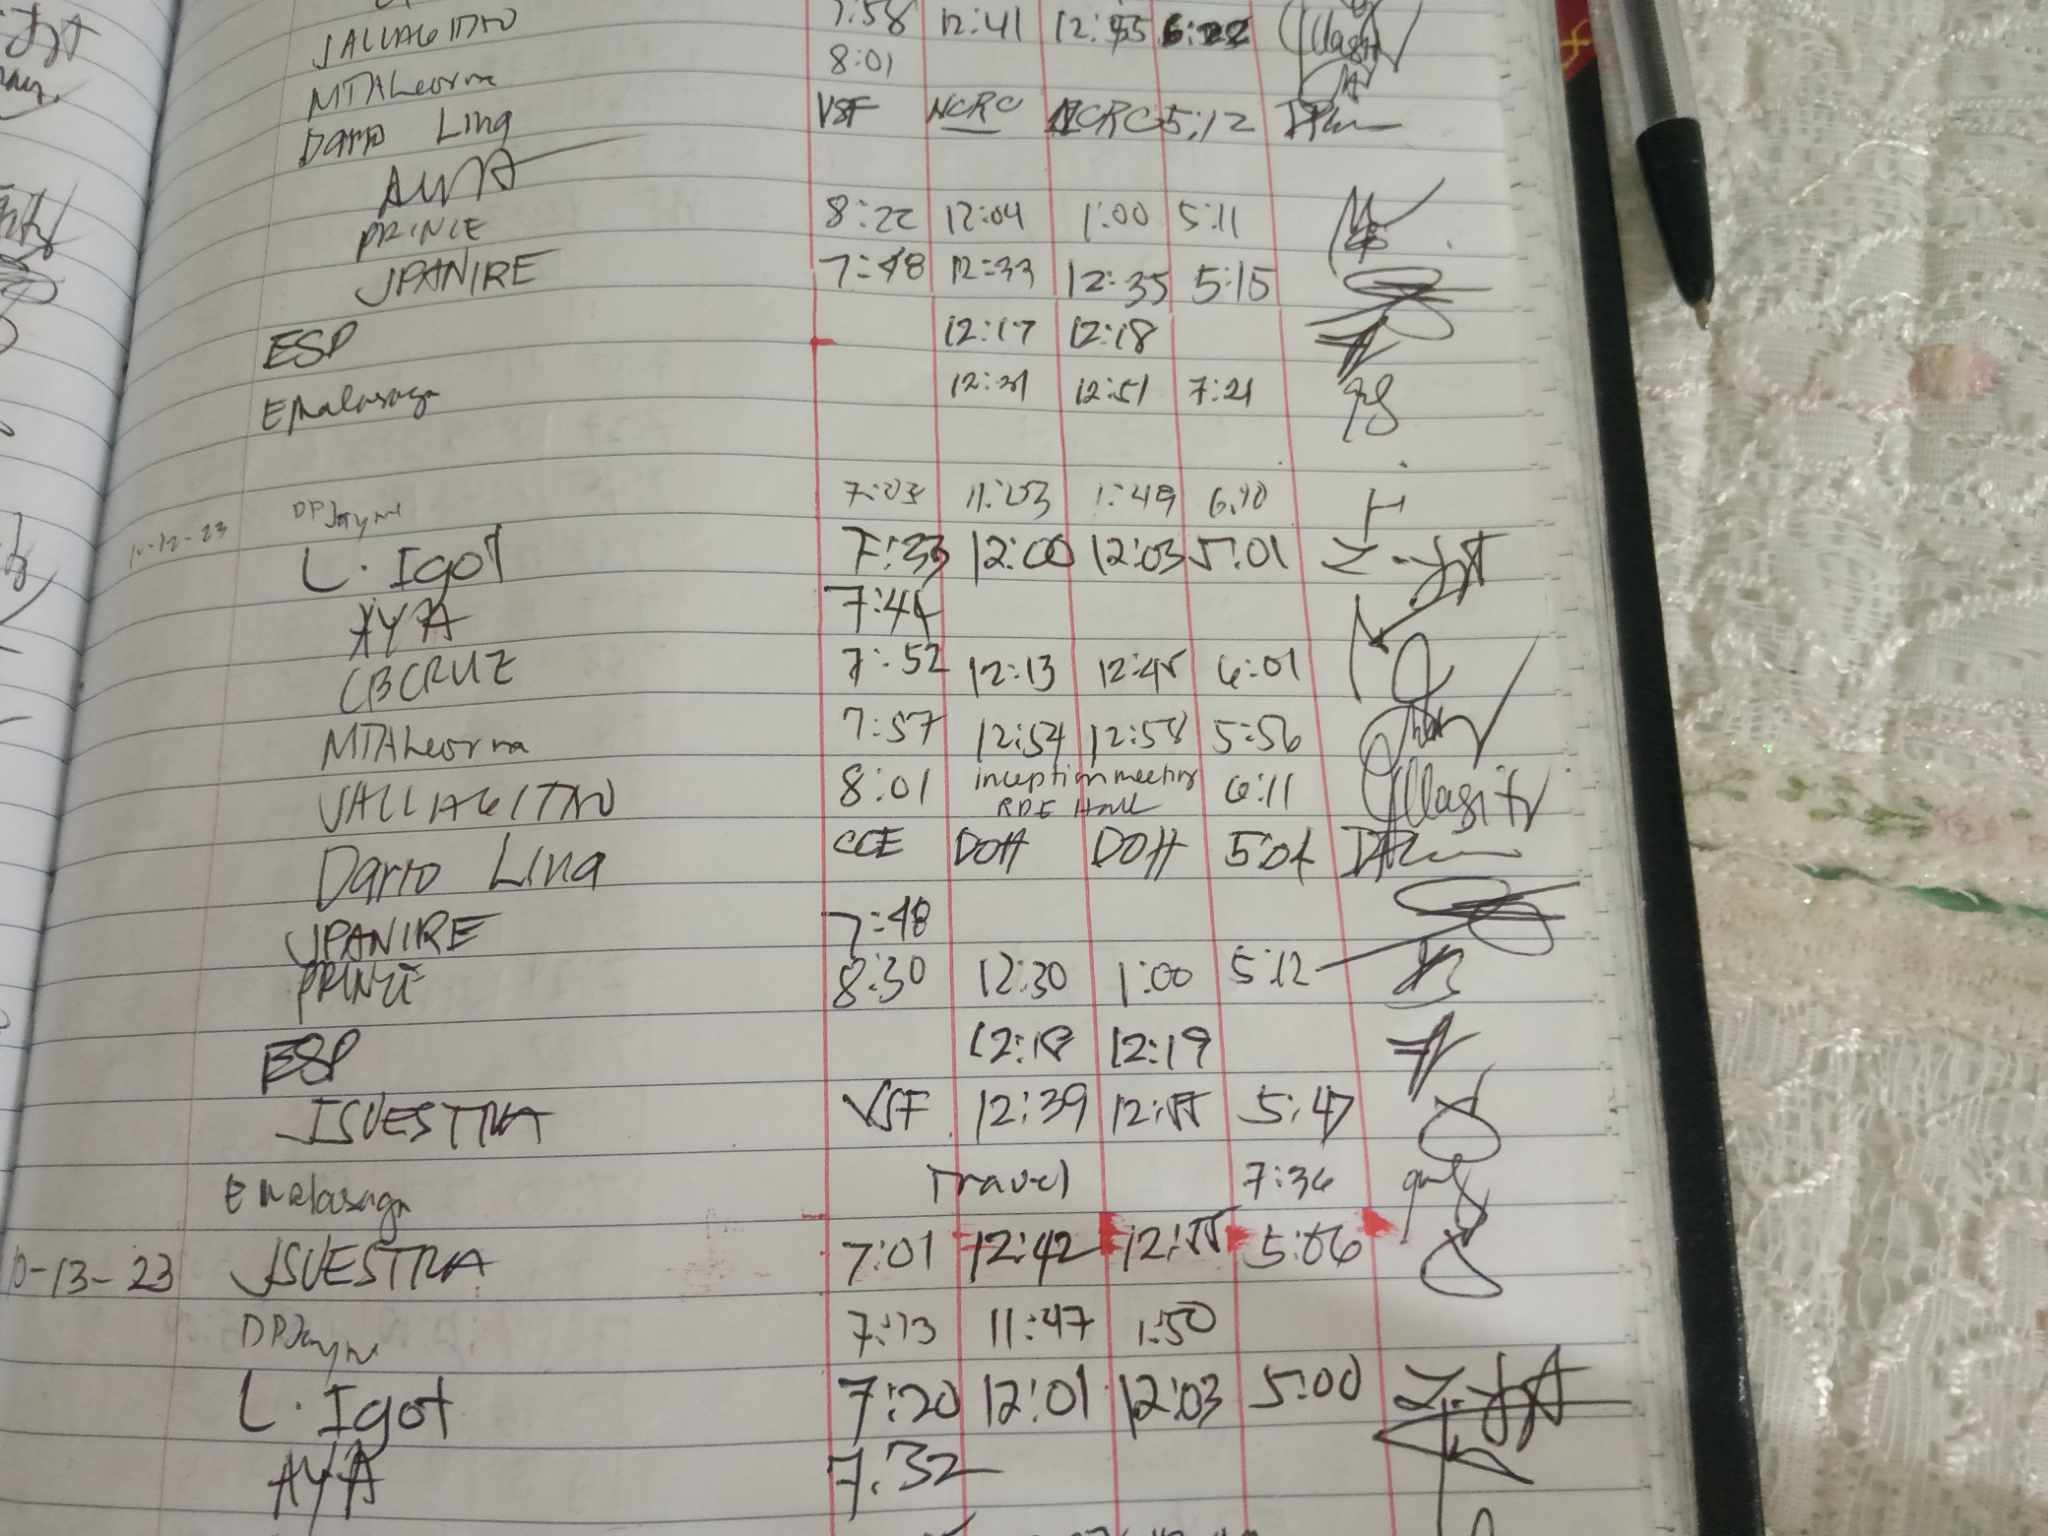 JALLAGITNO 7:58 12:41 12:55
MTALeorna 8:01
Dario Lina VSF NCRC NCRC 5:12
AYA
PRINCE 8:22 12:04 1:00 5:11
JPANIRE 7:48 12:33 12:35 5:15
ESP 12:17 12:18
EMalasaga 12:51 7:21
DPJayme 7:03 11:03 1:49 6:10
10-12-23 L. Igot 7:33 12:00 12:03 5:01
AYA 7:44
CBCRUZ 7:52 12:13 12:45 6:01
MTALeorna 7:57 12:54 12:58 5:56
JALLAGITNO 8:01 inception meeting RDE Hall 6:11
Dario Lina CCE DOH DOH 5:01
JPANIRE 7:48
PRINCE 8:30 12:30 1:00 5:12
ESP 12:18 12:19
JSVESTRA VSF 12:39 12:55 5:47
EMalasaga Travel 7:36
10-13-23 JSVESTRA 7:01 12:42 12:55 5:06
DPJayme 7:13 11:47 1:50
L. Igot 7:20 12:01 12:03 5:00
AYA 7:32